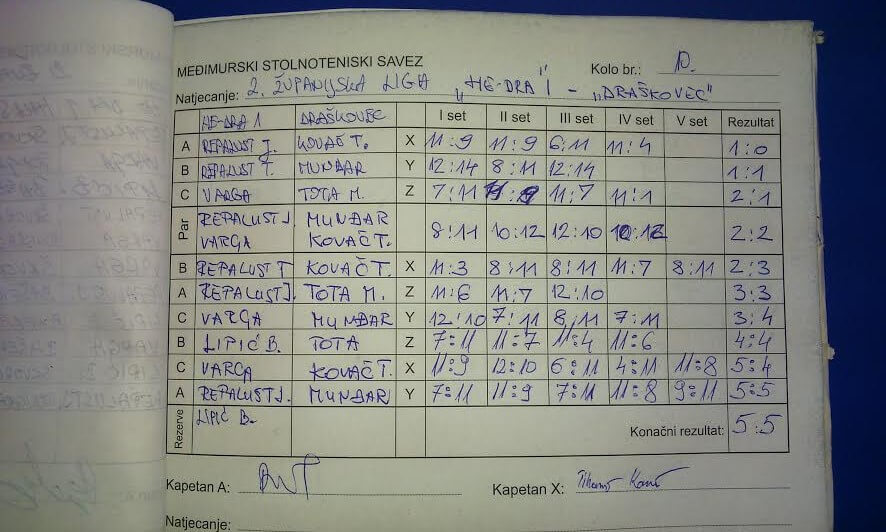 MEĐIMURSKI STOLNOTENISKI SAVEZ Kolo br.: 10.
Natjecanje: 2. ŽUPANIJSKA LIGA „HE-DRA" 1 - „DRAŠKOVEC"
HE-DRA 1 DRAŠKOVEC I set II set III set IV set V set Rezultat
A REPALUST J. KOVAČ T. X 11:9 11:9 6:11 11:4 1:0
B REPALUST T. MUNĐAR Y 12:14 8:11 12:14 1:1
C VARGA TOTA M. Z 7:11 11:9 11:7 11:1 2:1
Par REPALUST J. MUNĐAR 8:11 10:12 12:10 10:12 2:2
VARGA KOVAČ T.
B REPALUST T KOVAČ T. X 11:3 8:11 8:11 11:7 8:11 2:3
A REPALUST J. TOTA M. Z 11:6 11:7 12:10 3:3
C VARGA MUNĐAR Y 12:10 7:11 8:11 7:11 3:4
B LIPIĆ B. TOTA Z 7:11 11:7 11:4 11:6 4:4
C VARGA KOVAČ T. X 11:9 12:10 6:11 4:11 11:8 5:4
A REPALUST J. MUNĐAR Y 7:11 11:9 7:11 11:8 9:11 5:5
Rezerve LIPIĆ B. Konačni rezultat: 5:5
Kapetan A: Kapetan X:
Natjecanje: